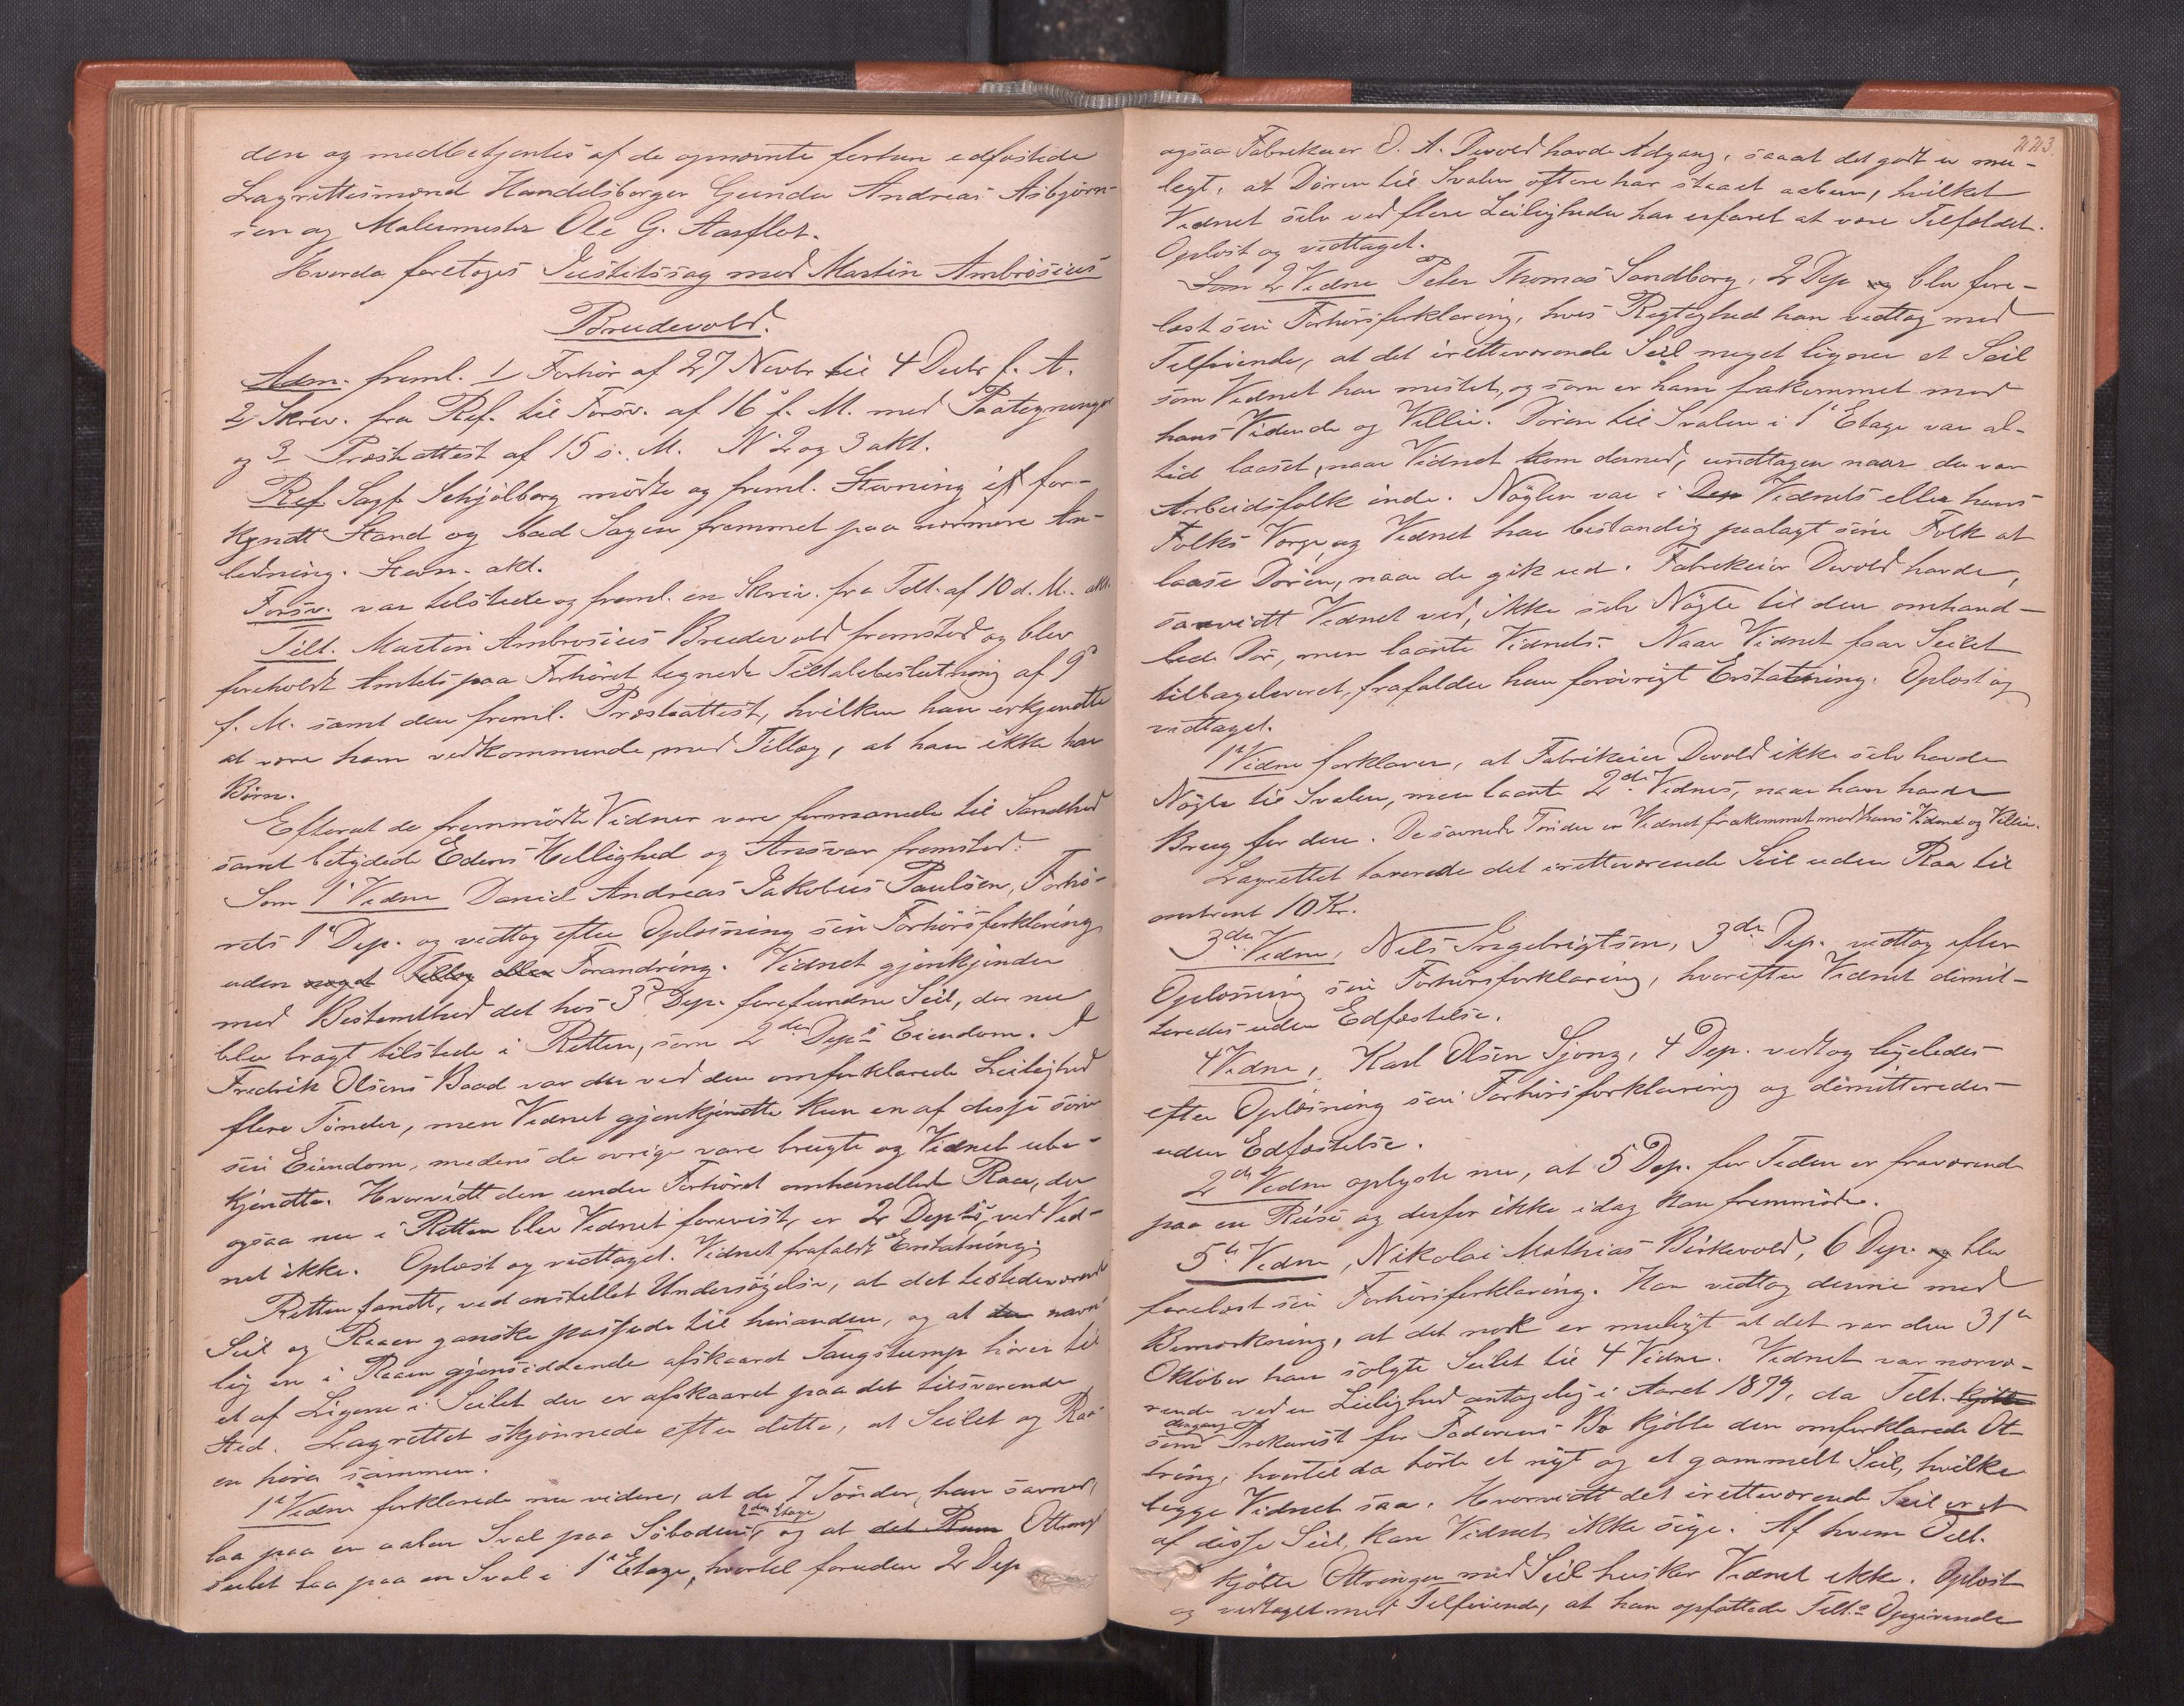 den og medbetjentes af de opnævnte fortun edfæstede
Lagrettesmænd Handelsborger Gunder Andreas Asbjørn-
sen og Malermester Ole G. Aarflot.
Hvorda foretoges Justitssag mod Martin Ambrosius
Brudevold.
Adm. freml. 1/ Forhør af 27 Novbr til 4 Decbr f. A.
2/ Skriv. fra Ref. til Forsv. af 16 f. M. med Paategninger
og 3/ Præsteattest af 15 s. M. N 2 og 3 akt.
Ref. Sagf. Schjölberg mödte og freml. Stevning i for-
kyndt Stand og bad Sagen fremmet paa nærmere An-
ledning. Stevn. akt.
Forsv. var tilstede og freml. en Skriv. fra Telt. af 10 d. M. akt.
Tilt. Martin Ambrosius Brudevold fremstod og blev
foreholdt Amtets paa Forhöret tegnede Tiltalebeslutning af 9
f. M. samt den freml. Præsteattest, hvilken han erkjendte
at være ham vedkommende, med Tillæg, at han ikke har
Børn.
Efterat de fremmödte Vidner vare formanede til Sandhed
samt betydede Edens Hellighed og Ansvar fremstod:
Som 1 Vidne David Andreas Jakobus Paulsen, Forhö-
rets 1 Dep. og vedtog efter Oplæsning sin Forhörsforklaring
uden noget Tillæg eller Forandring. Vidnet gjenkjender
med Bestemthed det hos 3 Dep. forefundne Seil, der nu
blev bragt tilstede i Retten, som 2den Deps Eiendom. I
Fredrik Olsens Baad var der ved den omforklarede Leilighed
flere Tönder, men Vidnet gjenkjendte kun en af disse som
sin Eiendom, medens de övrige vare brugte og Vidnet ube-
kjendte. Hvorvidt den under Forhöret omhandlede Raa, der
ogsaa nu i Retten blev Vidnet forevist, er 2 Deps, ved Vid-
net ikke. Oplæst og vedtaget. Vidnet frafaldt Erstatning.
Retten fandt, ved anstillet Undersögelse, at det tilstedeværende
Seil og Raaen ganske passede til hinanden, og at den navn-
lig en i Raaen gjensiddende afskaaret Taugstump hörer til
et af Ligene i Seilet der er afskaaret paa det tilsvarende
Sted. Lagrettet skjønnede efter dette, at Seilet og Raa-
en hörer sammen.
1 Vidne forklarede nu videre, at de 7 Tönder, han savned,
2den Etage
laa paa en aaben Sval paa Söbodens, og at det Rum Ottrings
seilet laa paa en Sval i 1 Etage, hvortil foruden 2 Dep
223.
ogsaa Fabrikeier O. A. Devold havde Adgang, saaat det godt er mu-
legt, at Dören til Svalen oftere har staaet aaben, hvilket
Vidnet selv ved flere Leiligheder har erfaret at være Tilfældet.
Oplæst og vedtaget.
Som 2 Vidne Peter Thomas Sandborg, 2 Dep og blev fore-
læst sin Forhörsforklaring, hvis Rigtighed han vedtog med
Tilföiende, at det iretteværende Seil meget ligner et Seil
som Vidnet har mistet, og som er ham frakommet mod
hans Vidende og Villie. Dören til Svalen i 1 Etage var al-
tid laaset, naar Vidnet kom derned, undtagen naar der var
Arbeidsfolk inde. Nöglen var i Dep Vidnets eller hans
Folks Værge, og Vidnet har bestandig paalagt sine Folk at
laase Dören, naar de gik ud. Fabrikeier Devold havde,
saavidt Vidnet ved, ikke selv Nögle til den omhand-
lede Dör, men laante Vidnets. Naar Vidnet faar Seilet
tilbageleveret, frafalder han forövrigt Erstatning. Oplæst og
vedtaget.
1 Vidne forklarer, at Fabrikeier Devold ikke selv havde
Nögle til Svalen, men laante 2det Vidnes, naar han havde
Brug for den. De savnede Tönder er Vidnet frakommet mod hans Vidende og Villie.
Lagrettet taxerede det iretteværende Seil uden Raa til
omtrent 10 Kr.
3die Vidne, Nils Ingebrigtsen, 3die Dep. vedtog efter
Oplæsning sin Forhörsforklaring, hvorefter Vidnet dimit-
teredes uden Edfæstelse.
4 Vidne, Karl Olsen Sjong, 4 Dep. vedtog ligeledes
efter Oplæsning sin Forhörsforklaring og dimitteredes
uden Edfæstelse.
2det Vidne oplyste nu, at 5 Dep. for Tiden er fraværende
paa en Reise og derfor ikke idag kan fremmöde.
5te Vidne, Nikolai Mathias Birkevold, 6 Dep. og blev
forelæst sin Forhörsforklaring. Han vedtog denne med
Bemærkning, at det nok er muligt at det var den 31
Oktober han solgte Seilet til 4 Vidne. Vidnet var nærvæ-
rende ved en Leilighed antagelig i Aaret 1879, da Telt. kjöbte
dengang
som Prokurist for Faderens Bo kjöbte den omforklarede Ot-
tring, hvortil da hörte et nyt og et gammelt Seil, hvilke
begge Vidnet saa. Hvorvidt det iretteværende Seil er et
af disse Seil, kan Vidnet ikke sige. Af hvem Telt.
kjöbte Ottringen med Seil husker Vidnet ikke. Oplæst
og vedtaget med Tilföiende, at han opfattede Telt.s Opgivende